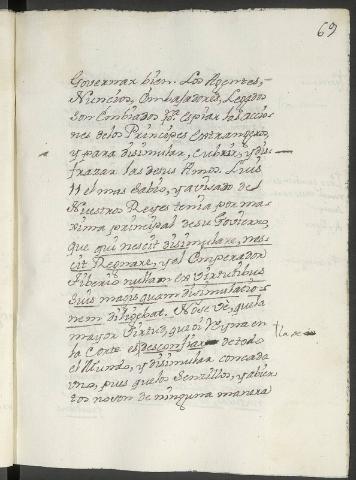 69
Governar bien. Los Agentes,
Nuncios, Embajadores, Legados
son Embiados pa. espiar las accio
nes delos Principes estrangeros,
y para disimular, cubrir, y dis-
frazar las desus Amos. Luis
11 el mas Sabio, y avisado de
Nuestros Reyes tenia por ma-
xima principal desu Govierno,
que qui nescit disimulare, nes-
cit Regnare, y el Emperador
Tiberio nullam ex virtutibus
suis magis quam disimulatio
nem diligebat. Nose vè, que la
mayor virtud, que oi Reyna en
la Corte es desconfiar de todo
el Mundo, y disimular con cada
vno, pues que los Senzillos, y abier
tos no son de ninguna manera
la de